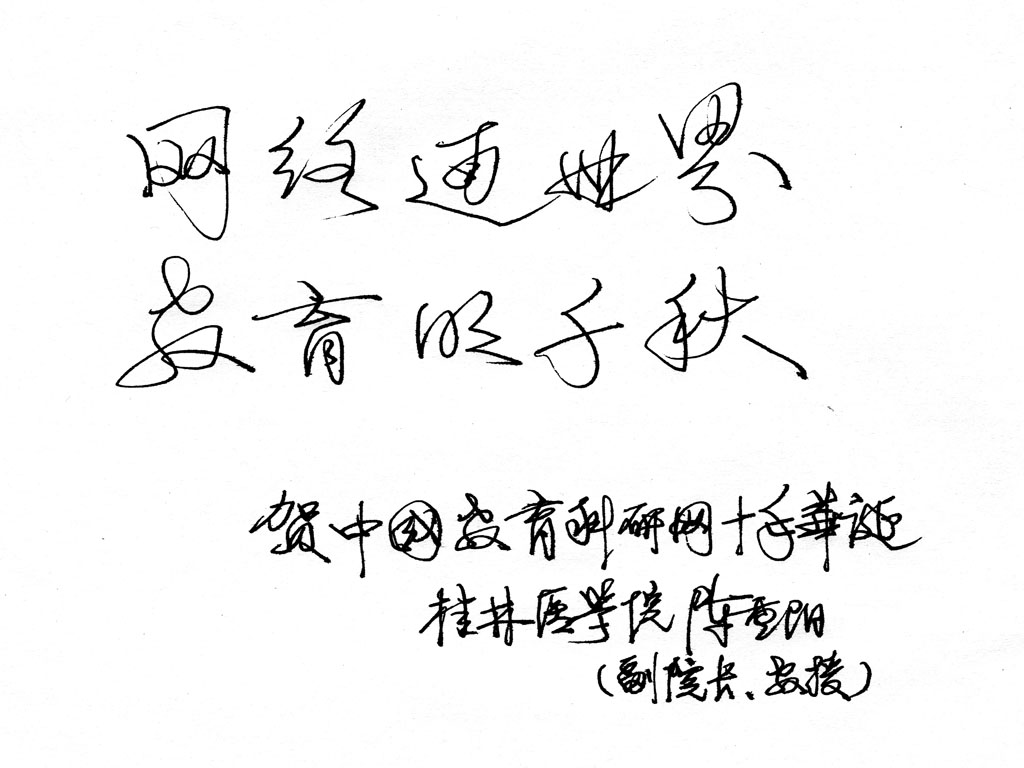 网络通世界
教育明千秋
贺中国教育科研网十年華诞
桂林医学院 陈重阳
(副院长、教授)